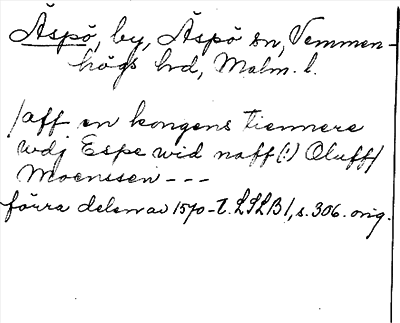 Äspö, by, Äspö sn, Vemmen-
högs hrd, Malm. l.
/aff en kongens tiennere
wdj Espe wid naff (:) Oluff/
Moenssen - - -
förra delen av 1570-t. LSLB 1, s. 306. orig.